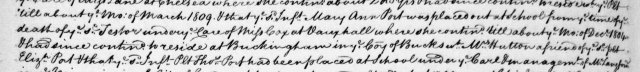 till about yᵉ Mo. of March 1809. & that yᵉ sᵈ Infᵗ Mary Ann Port was placed out at School from yᵉ time of yᵉ
death of yᵉ sᵈ Testor under yᵉ Care of Miss Cox at Vauxhall where she contind till about yᵉ Mo. of Decr 1804
& had since contind to reside at Buckingham in yᵉ Coy of Bucks wᵗʰ Mrs Hutton a friend of yᵉ sᵈ
Elizth Port & that yᵉ sᵈ Infᵗ Plt Thos Port had been placed at School under yᵉ Care & managemt of Mr